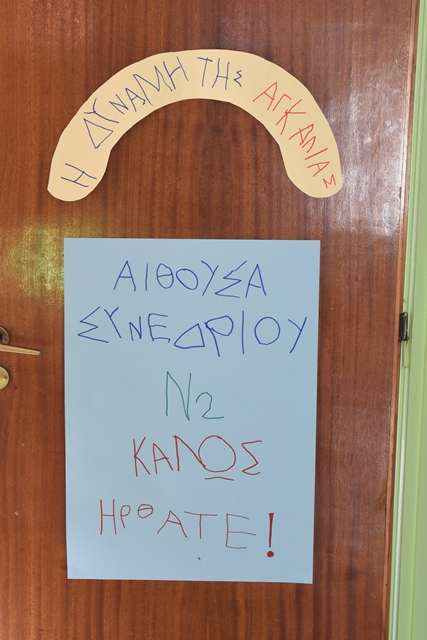 Η ΔΥΝΑΜΗ ΤΗΣ ΑΓΚΑΝΙΑΣ
ΑΙΘΟΥΣΑ
ΣΥΝΕΔΡΙΟΥ
Ν2
ΚΑΛΟΣ
ΗΡΘΑΤΕ!